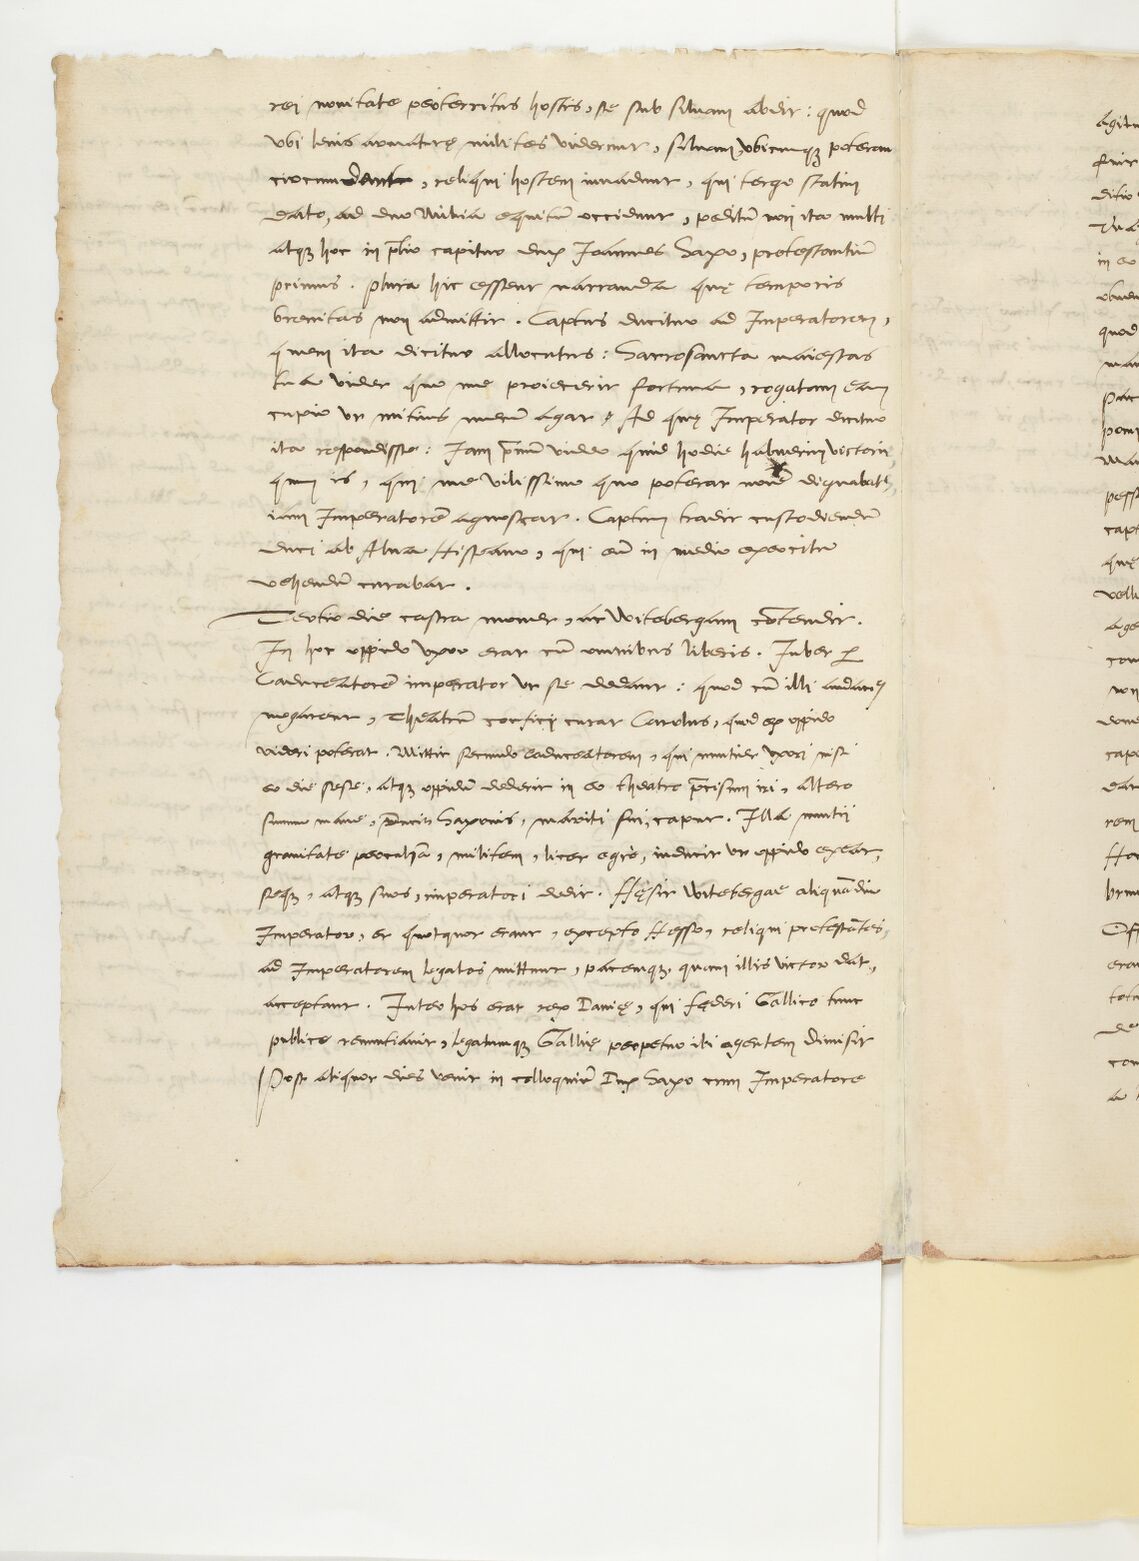 rei nouitate perterritus hostis, se sub siluam abdit: quod
vbi leuis armaturę milites viderunt, siluam vbicumqȝ poteran
circumdant, reliqui hostem inuadunt, qui tergo statim
dato, ad duo Milia equitũ occidunt, peditũ non ita multi
atqȝ hoc in p̃lio capitur dux Joannes Saxo, protestantiũ
primus. plura hic essent narranda quę temporis
breuitas non admittit. Captus ducitur ad Imperatorem,
quem ita dicitur allocutus: Sacrosancta maiestas
tua videt quo me proiecerit fortuna, rogatam eam
cupio vt mitius mecũ agat. Ad quę Imperator dicitur
ita respondisse: Jam p̃mũ video quid hodie habuerim victorię
quum is, qui me vilissimo quo poterat noĩe dignabat͛,
iam Imperatorẽ agnoscat. Captum tradit custodiendũ
duci ab Alua Hispano, qui eũ in medio exercitu
vehendũ curabat.
Tertio die castra mouet, ac Witebergam cõtendit.
In hoc oppido vxor erat cũ omnibus liberis. Jubet ꝑ
Caduceatorẽ imperator vt se dedant: quod cũ illi
negarent, Theatrũ confici curat Carolus, quod ex oppido
videri poterat. Mittit secundo caduceatorem, qui nuntiet vxori nisi
eo die sese, atqȝ oppidũ dederit in eo theatro p̃cisum iri, altero
summo mane, Ducis Saxonis, mariti sui, caput. Illa nuntii
grauitate perculsa, militem, licet egrè, inducit vt oppido exeat,
seqȝ, atqȝ suos, imperatori dedit. Hęsit Witebergae aliquãdiu
Imperator, et quotquot erant, excepto Hesso, reliqui protestãtes,
ad Imperatorem legatos mittunt, pacemqȝ, quam illis victor dat,
acceptant. Inter hos erat rex Danię, qui fęderi Gallico tunc
publice renuntiauit, legatumqȝ Gallię perpetuo ibi agentem dimisit
Post aliquot dies venit in colloquiũ Dux Saxo cum Imperatore